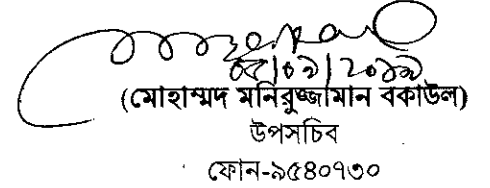 (মোহাম্মদ মনিরুজ্জামান বকাউল)
উপসচিব
ফোন-৯৫৪০৭৩০